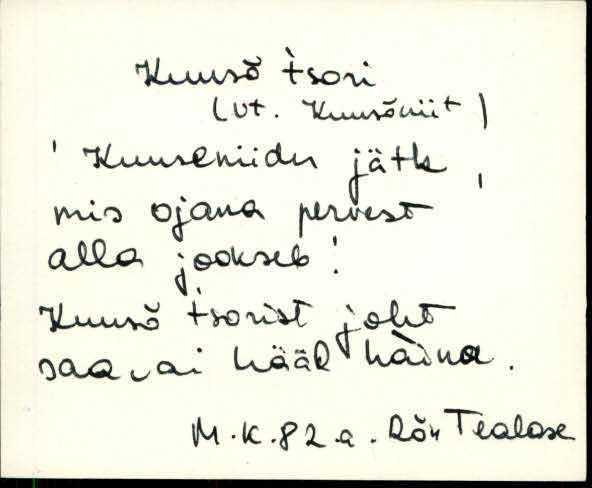 Kuusõ tsori
(vt. Kuusõniit)
'Kuuseniidu jätk,
mis ojana pervest
alla jookseb'
Kuusõ tsorist joht
saa ai hääd haina.
M.K. 82.a. Rõu Tealase